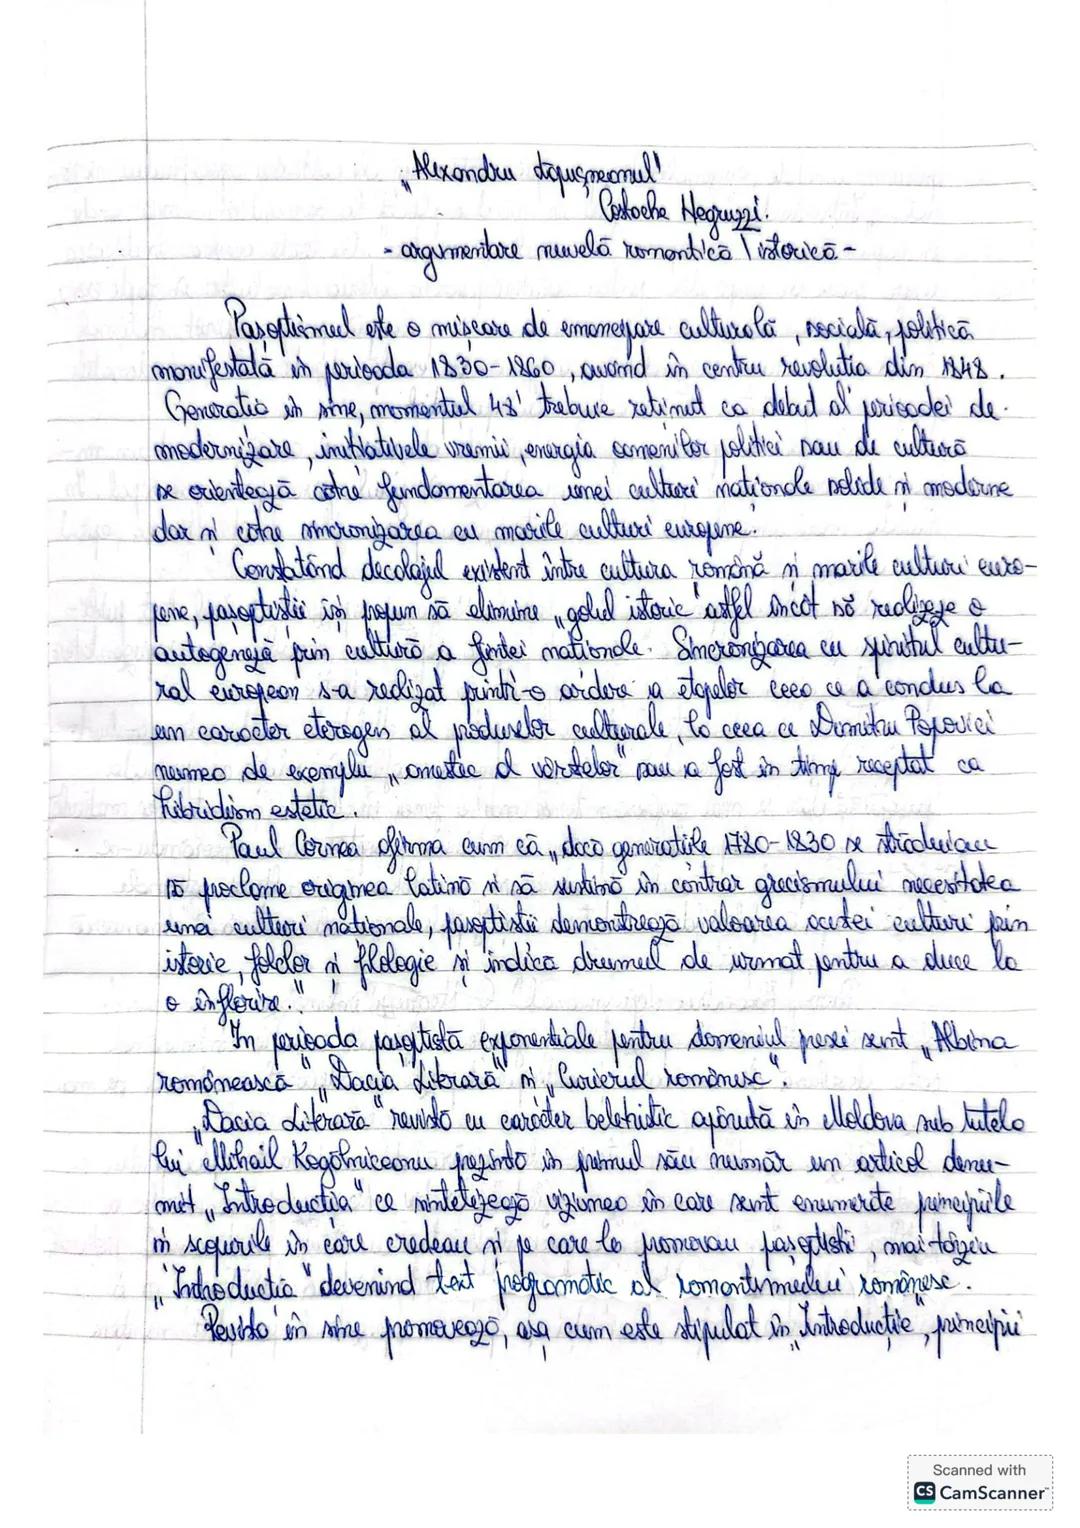 „Alexandru Lăpușneanul"
Costache Negruzzi.
- argumentare nuvelă romantică / istorică -
Pașoptismul este o mișcare de emancipare culturală, socială, politică
manifestată în perioada 1830-1860, având în centru revoluția din 1848.
Generatio in sine, momentul 48' trebuie reținut ca debut al perioadei de
modernizare, inițiativele vremii, energia oamenilor politici sau de cultură
se orientează către fundamentarea unei culturi naționale solide și moderne
dar și către sincronizarea cu marile culturi europene.
Constatând decalajul existent între cultura română și marile culturi euro-
pene, pașoptiștii își propun să elimine „golul istoric" astfel încât să realizeze o
autogeneză prin cultură a ființei naționale. Sincronizarea cu spiritul cultu-
ral european s-a realizat printr-o ardere a etapelor ceea ce a condus la
un caracter eterogen al produselor culturale, la ceea ce Dimitru Popovici
numea de exemplu „amestec al vârstelor" sau a fost în timp receptat ca
hibridism estetic.
Paul Cornea afirma cum că „dacă generațiile 1780-1830 se străduiau
să proclame originea latină și să susțină în contrar grecismului necesitatea
unei culturi naționale, pașoptiștii demonstrează valoarea acestei culturi prin
istorie, folclor și filologie și indică drumul de urmat pentru a duce la
o înflorire."
În perioada pașoptistă exponențiale pentru domeniul presei sunt „Albina
românească" „Dacia Literară" și „Curierul românesc".
„Dacia Literară" revistă cu caracter beletristic apărută în Moldova sub tutela
lui Mihail Kogălniceanu prezintă în primul său număr un articol denu-
mit „Introducția" ce sintetizează viziunea în care sunt enumerate principiile
și scopurile în care credeau și pe care le promovau pașoptiștii, mai târziu
„Introducția" devenind text programatic al romantismului românesc.
Revista în sine promovează, așa cum este stipulat în „Introducție", principii
Scanned with
CS CamScanner